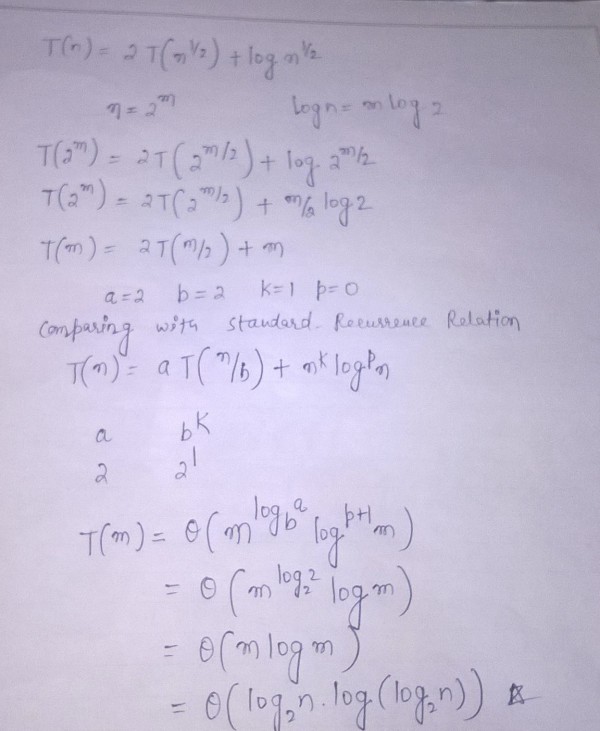 T(n) = 2T(n^1/2) + log n^1/2
n = 2^m log n = m log 2
T(2^m) = 2T(2^m/2) + log 2^m/2
T(2^m) = 2T(2^m/2) + m/2 log 2
T(m) = 2T(m/2) + m
a=2 b=2 k=1 p=0
Comparing with standard Recurrence Relation
T(n) = a T(n/b) + n^k log^p n
a b^k
2 2^1
T(m) = θ(m^log_b^a log^p+1 m)
= θ(m^log_2^2 log m)
= θ(m log m)
= θ(log_2 n . log(log_2 n))